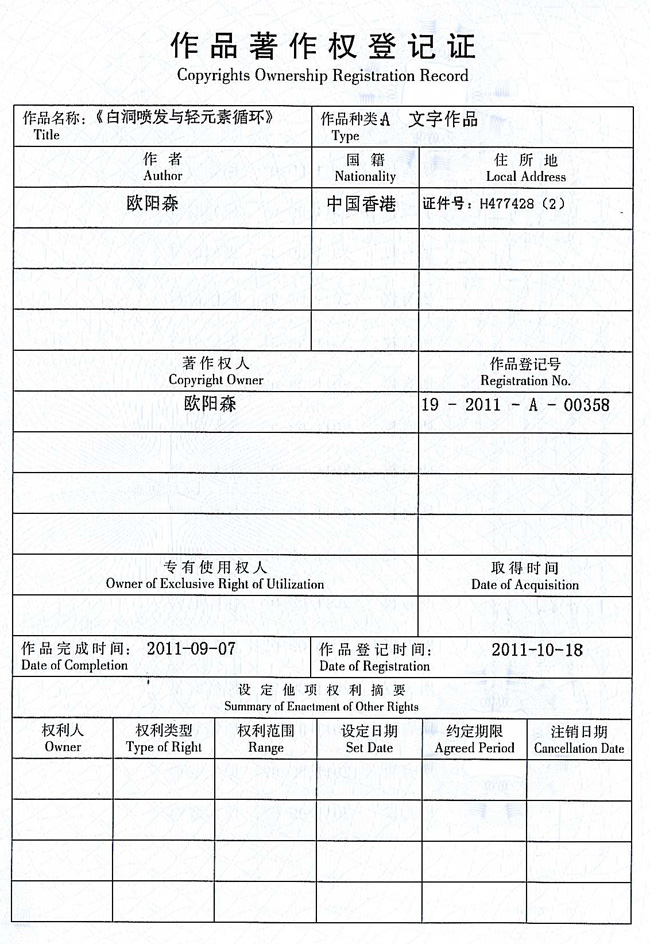 作品著作权登记证
Copyrights Ownership Registration Record
作品名称：《白洞喷发与轻元素循环》
Title
作品种类A 文字作品
Type
作者
Author
国籍
Nationality
住所地
Local Address
欧阳森
中国香港
证件号：H477428（2）
著作权人
Copyright Owner
作品登记号
Registration No.
欧阳森
19 - 2011 - A - 00358
专有使用权人
Owner of Exclusive Right of Utilization
取得时间
Date of Acquisition
作品完成时间： 2011-09-07
Date of Completion
作品登记时间： 2011-10-18
Date of Registration
设定他项权利摘要
Summary of Enactment of Other Rights
权利人
Owner
权利类型
Type of Right
权利范围
Range
设定日期
Set Date
约定期限
Agreed Period
注销日期
Cancellation Date